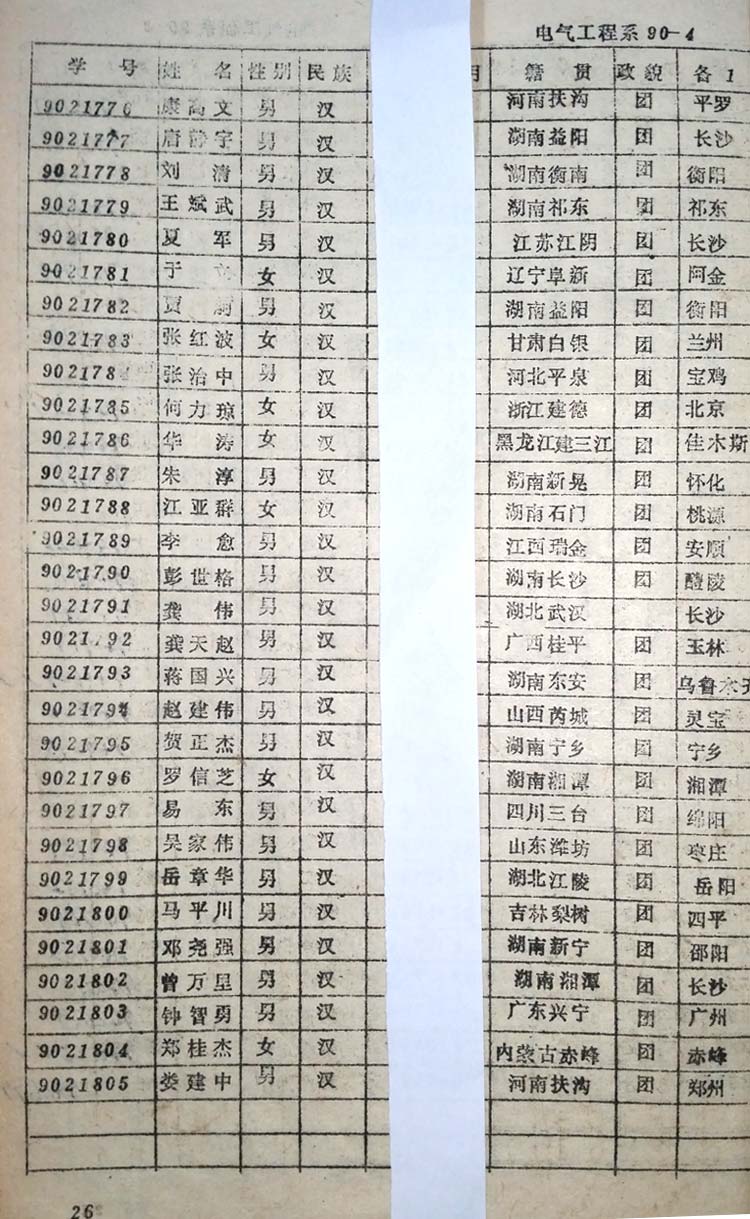 电气工程系90-4
学号 姓名 性别 民族 籍贯 政貌 备1
9021776 康高文 男 汉 河南扶沟 团 平罗
9021777 唐静宇 男 汉 湖南益阳 团 长沙
9021778 刘清 男 汉 湖南衡南 团 衡阳
9021779 王斌武 男 汉 湖南祁东 团 祁东
9021780 夏军 男 汉 江苏江阴 团 长沙
9021781 于立 女 汉 辽宁阜新 团 阿金
9021782 贾 男 汉 湖南益阳 团 衡阳
9021783 张红波 女 汉 甘肃白银 团 兰州
902178 张治中 男 汉 河北平泉 团 宝鸡
9021785 何力琼 女 汉 浙江建德 团 北京
9021786 华涛 女 汉 黑龙江建三江 团 佳木斯
9021787 朱淳 男 汉 湖南新晃 团 怀化
9021788 江亚群 女 汉 湖南石门 团 桃源
9021789 李愈 男 汉 江西瑞金 团 安顺
9021790 彭世格 男 汉 湖南长沙 团 醴陵
9021791 龚伟 男 汉 湖北武汉 长沙
9021792 龚天赵 男 汉 广西桂平 团 玉林
9021793 蒋国兴 男 汉 湖南东安 团 乌鲁木齐
9021794 赵建伟 男 汉 山西芮城 团 灵宝
9021795 贺正杰 男 汉 湖南宁乡 团 宁乡
9021796 罗信芝 女 汉 湖南湘潭 团 湘潭
9021797 易东 男 汉 四川三台 团 绵阳
9021798 吴家伟 男 汉 山东潍坊 团 枣庄
9021799 岳章华 男 汉 湖北江陵 团 岳阳
9021800 马平川 男 汉 吉林梨树 团 四平
9021801 邓尧强 男 汉 湖南新宁 团 邵阳
9021802 曾万里 男 汉 湖南湘潭 团 长沙
9021803 钟智勇 男 汉 广东兴宁 团 广州
9021804 郑桂杰 女 汉 内蒙古赤峰 团 赤峰
9021805 娄建中 男 汉 河南扶沟 团 郑州
26